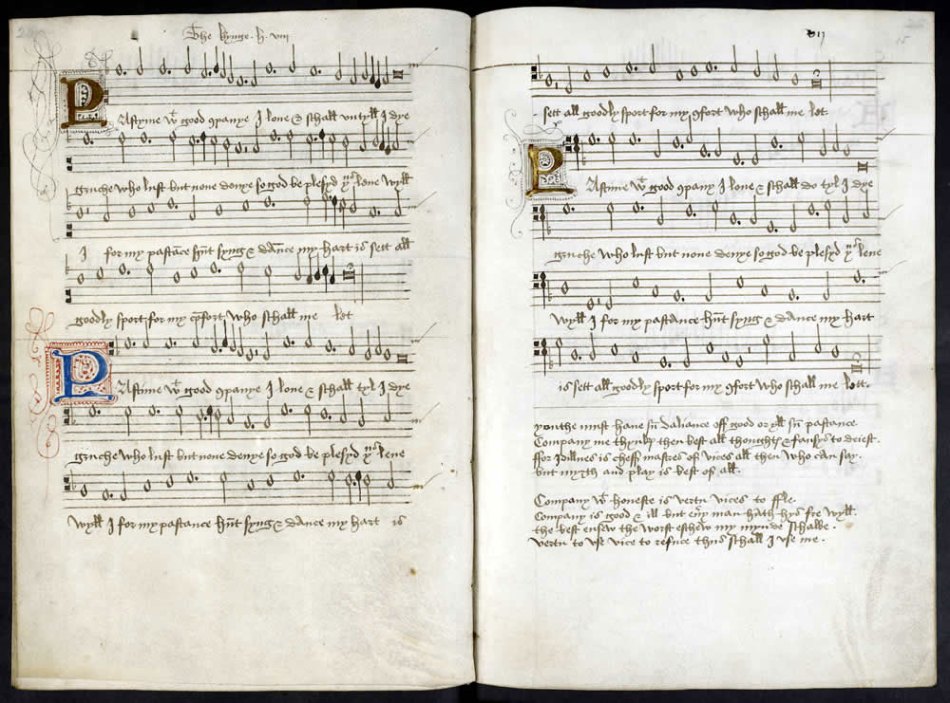 The kynge .h. viij
Pastyme wt good ꝯpanye I loue & schall untyll I dye
gruche who lust but none denye so god be plesyd yus leue wyll
I for my pastãce hũt syng & daũce my hart is sett all
goodly sport for my cõfort who schall me let
Pastime wt good ꝯpanye I loue & schall tyl I dye
gruche who lust but none denye so god be plesyd yus leue
wyll I for my pastance hũt syng & dance my hart is
sett all goodly sport for my ꝯfort who schall me let.
Pastime wt good ꝯpany I loue & schall do tyl I dye
gruche who lust but none denye so god be plesyd yus leue
wyll I for my pastance hũt syng & dance my hart
is sett all goodly sport for my ꝯfort who schall me lett.
youthe must haue sũ daliance off good or yll sũ pastance.
Company me thynkꝭ then best all thoughtꝭ & fansys to deiest.
ffor Idillnes is cheff mastres of vices all then who can say.
but myrth and play is best of all.
Company wt honeste is vertu vices to ffle.
Company is good & ill but eůy man hath hys fre wyll.
the best ensew the worst eschew my mynde schalbe.
vertu to use vice to refuce thus schall I use me.